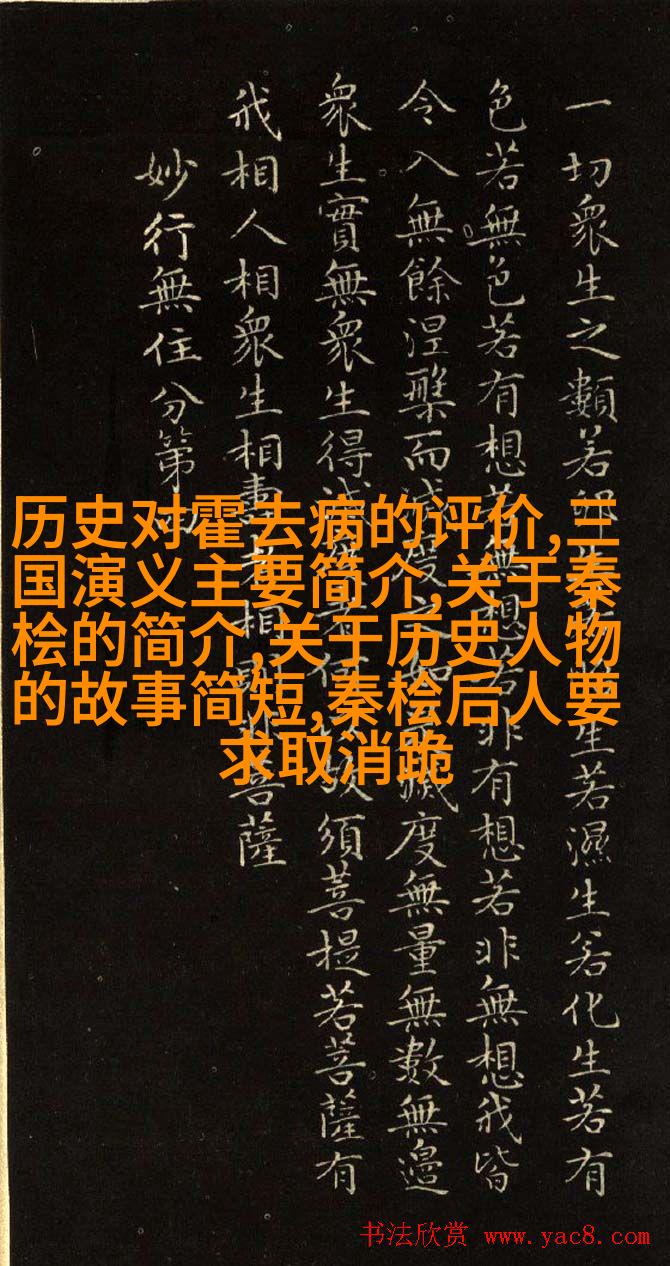 一切衆生之類若卵生若胎生若濕生若化生若有
色若無色若有想若無想若非有想若非無想我皆
令入無餘涅槃而滅度之如是滅度無量無數無邊
衆生實無衆生得滅度者何以故須菩提若菩薩有
我相人相衆生相壽者相即非菩薩
妙行無住分第四
历史对霍去病的评价,三
国演义主要简介,关于秦
桧的简介,关于历史人物
的故事简短,秦桧后人要
求取消跪
书法欣赏 www.yac8.com